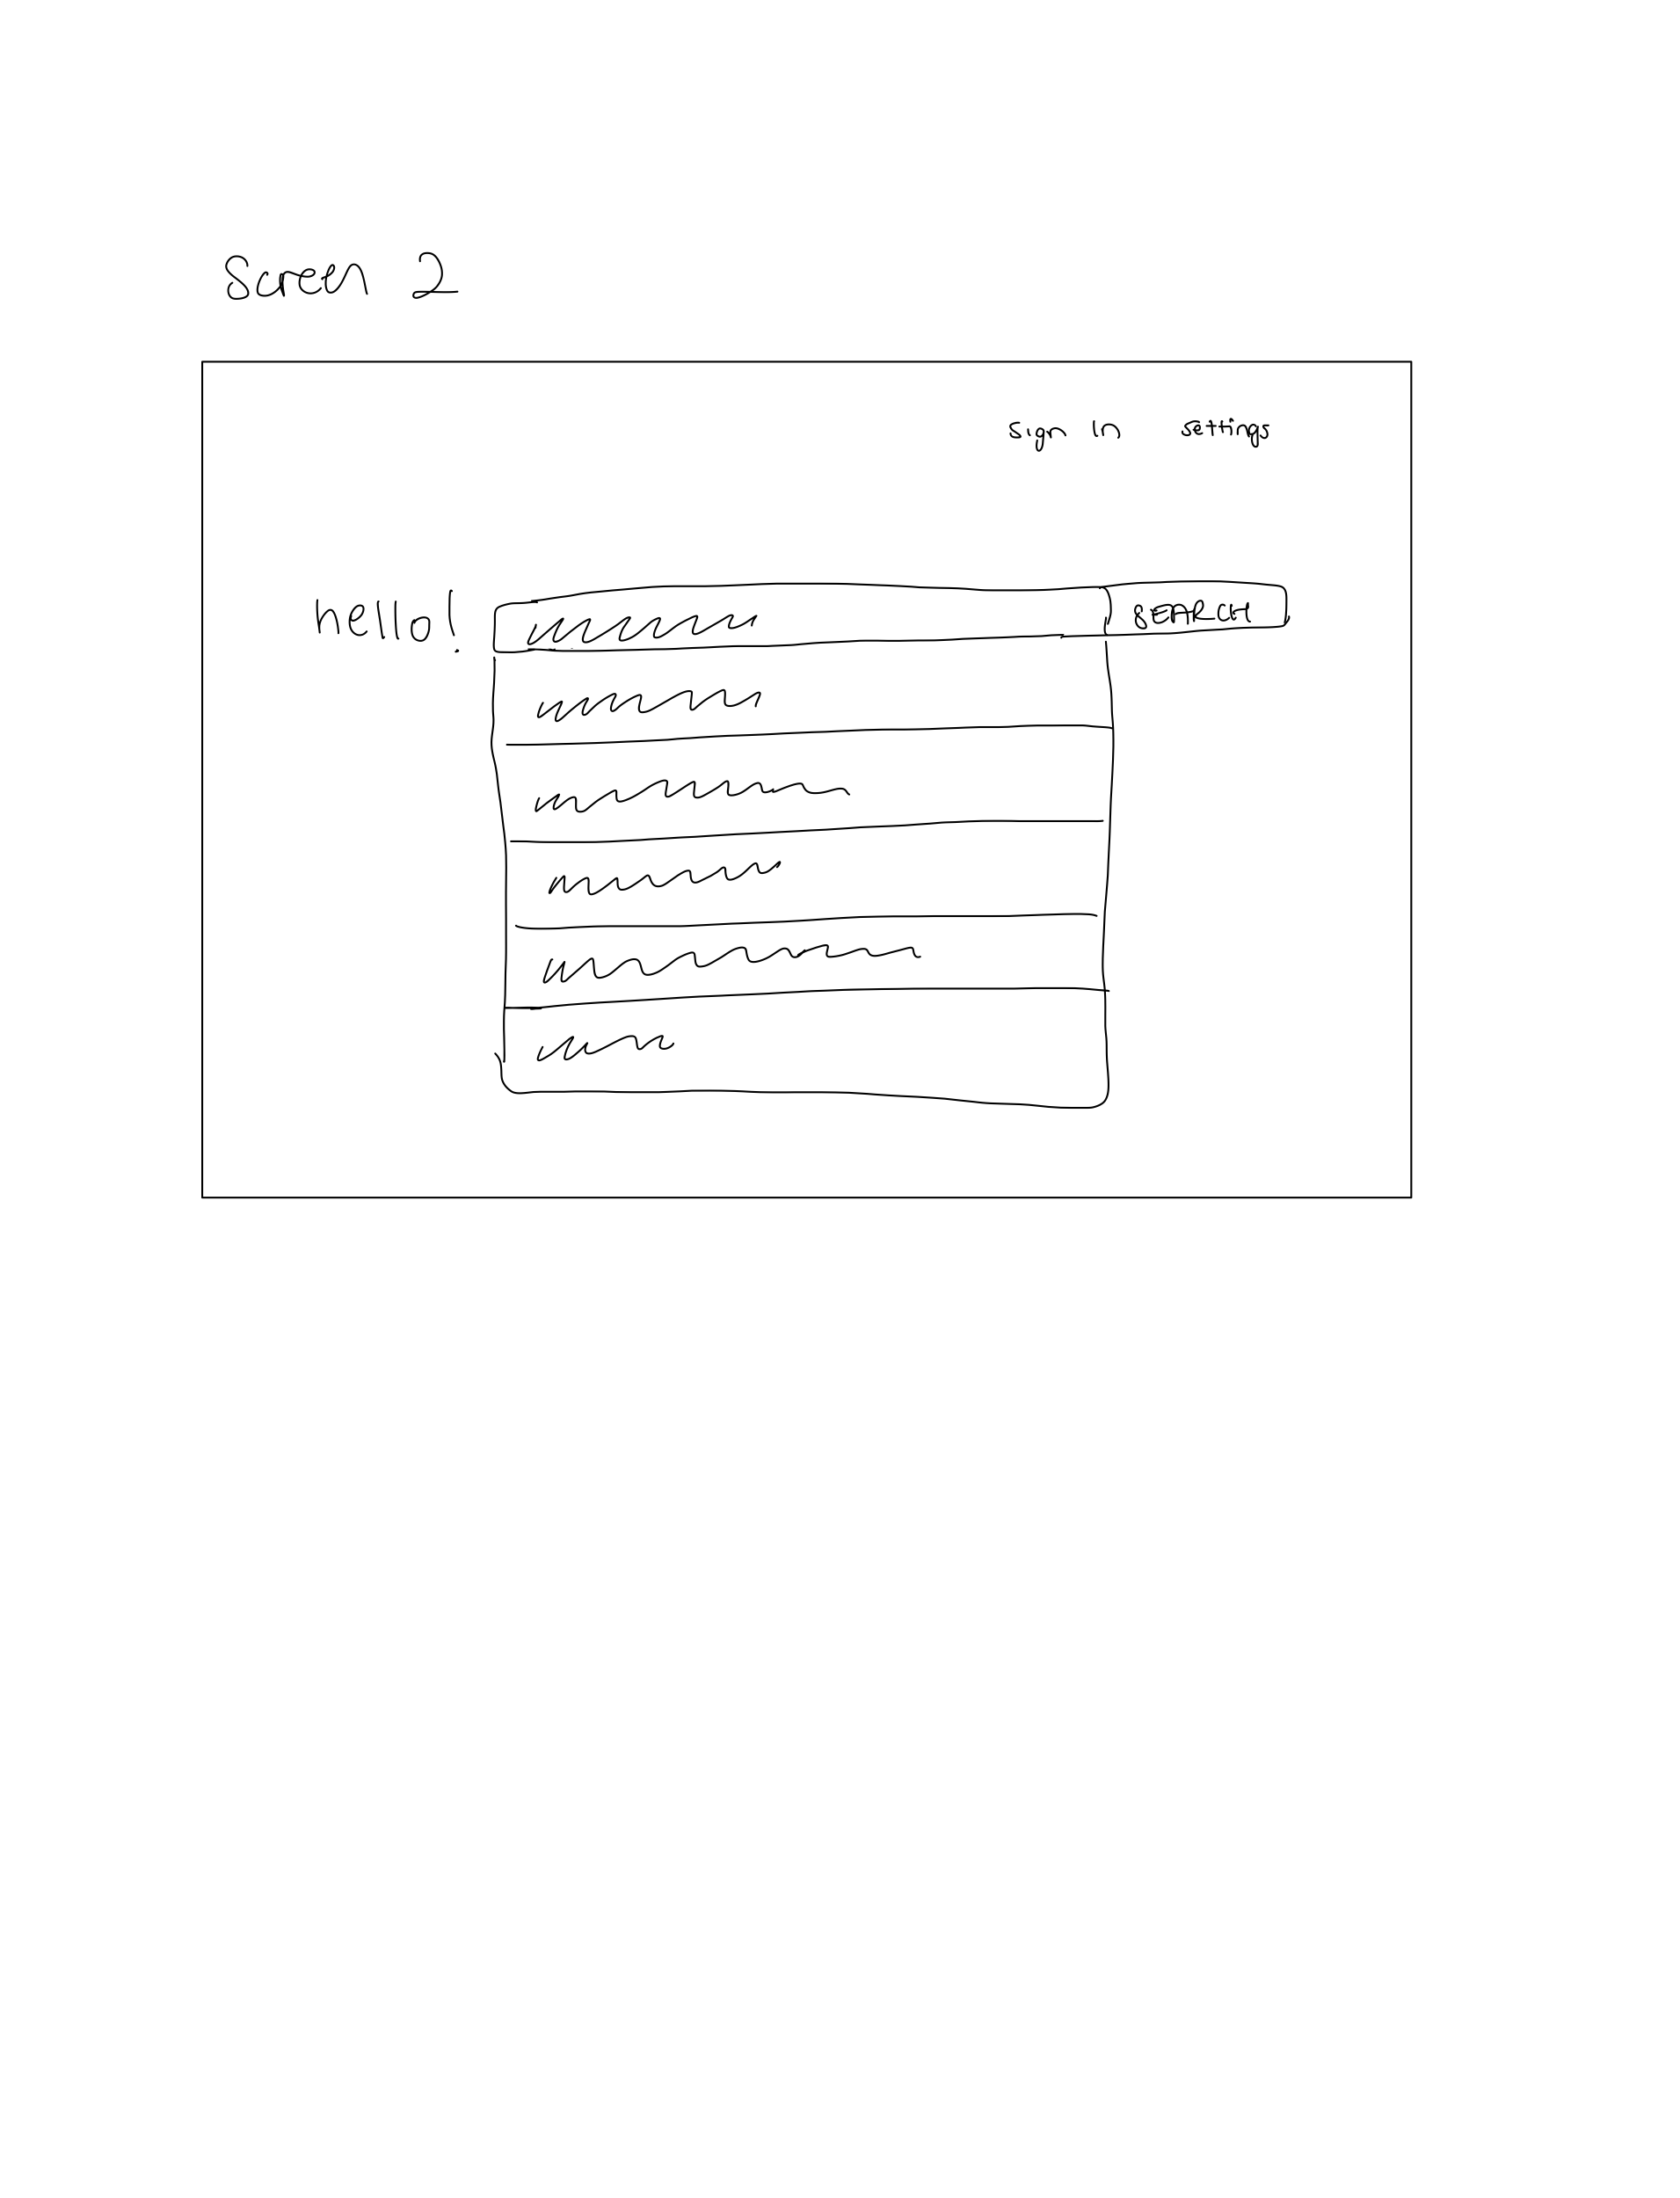 Screen 2
sign in settings
hello! search